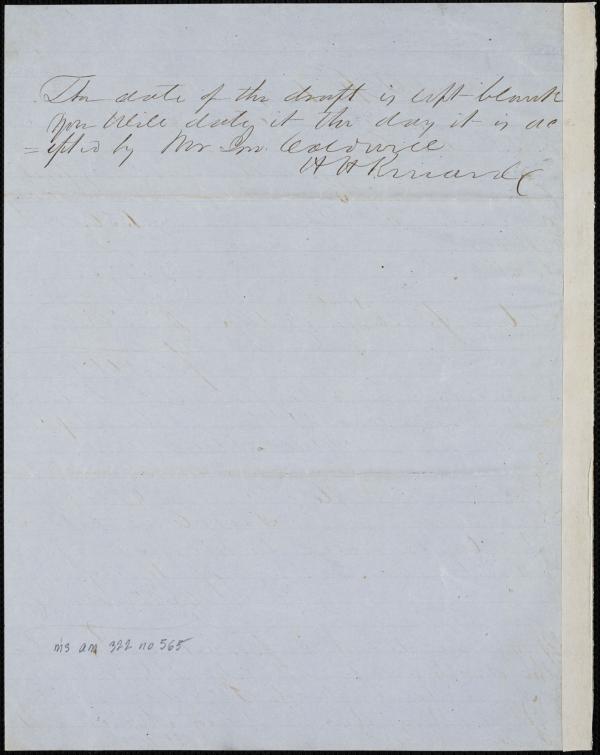 The date of the draft is left blank
you will date it the day it is ac
=cepted by Mr Jno Caldwell
H H Kinard
ms am 322 no 565